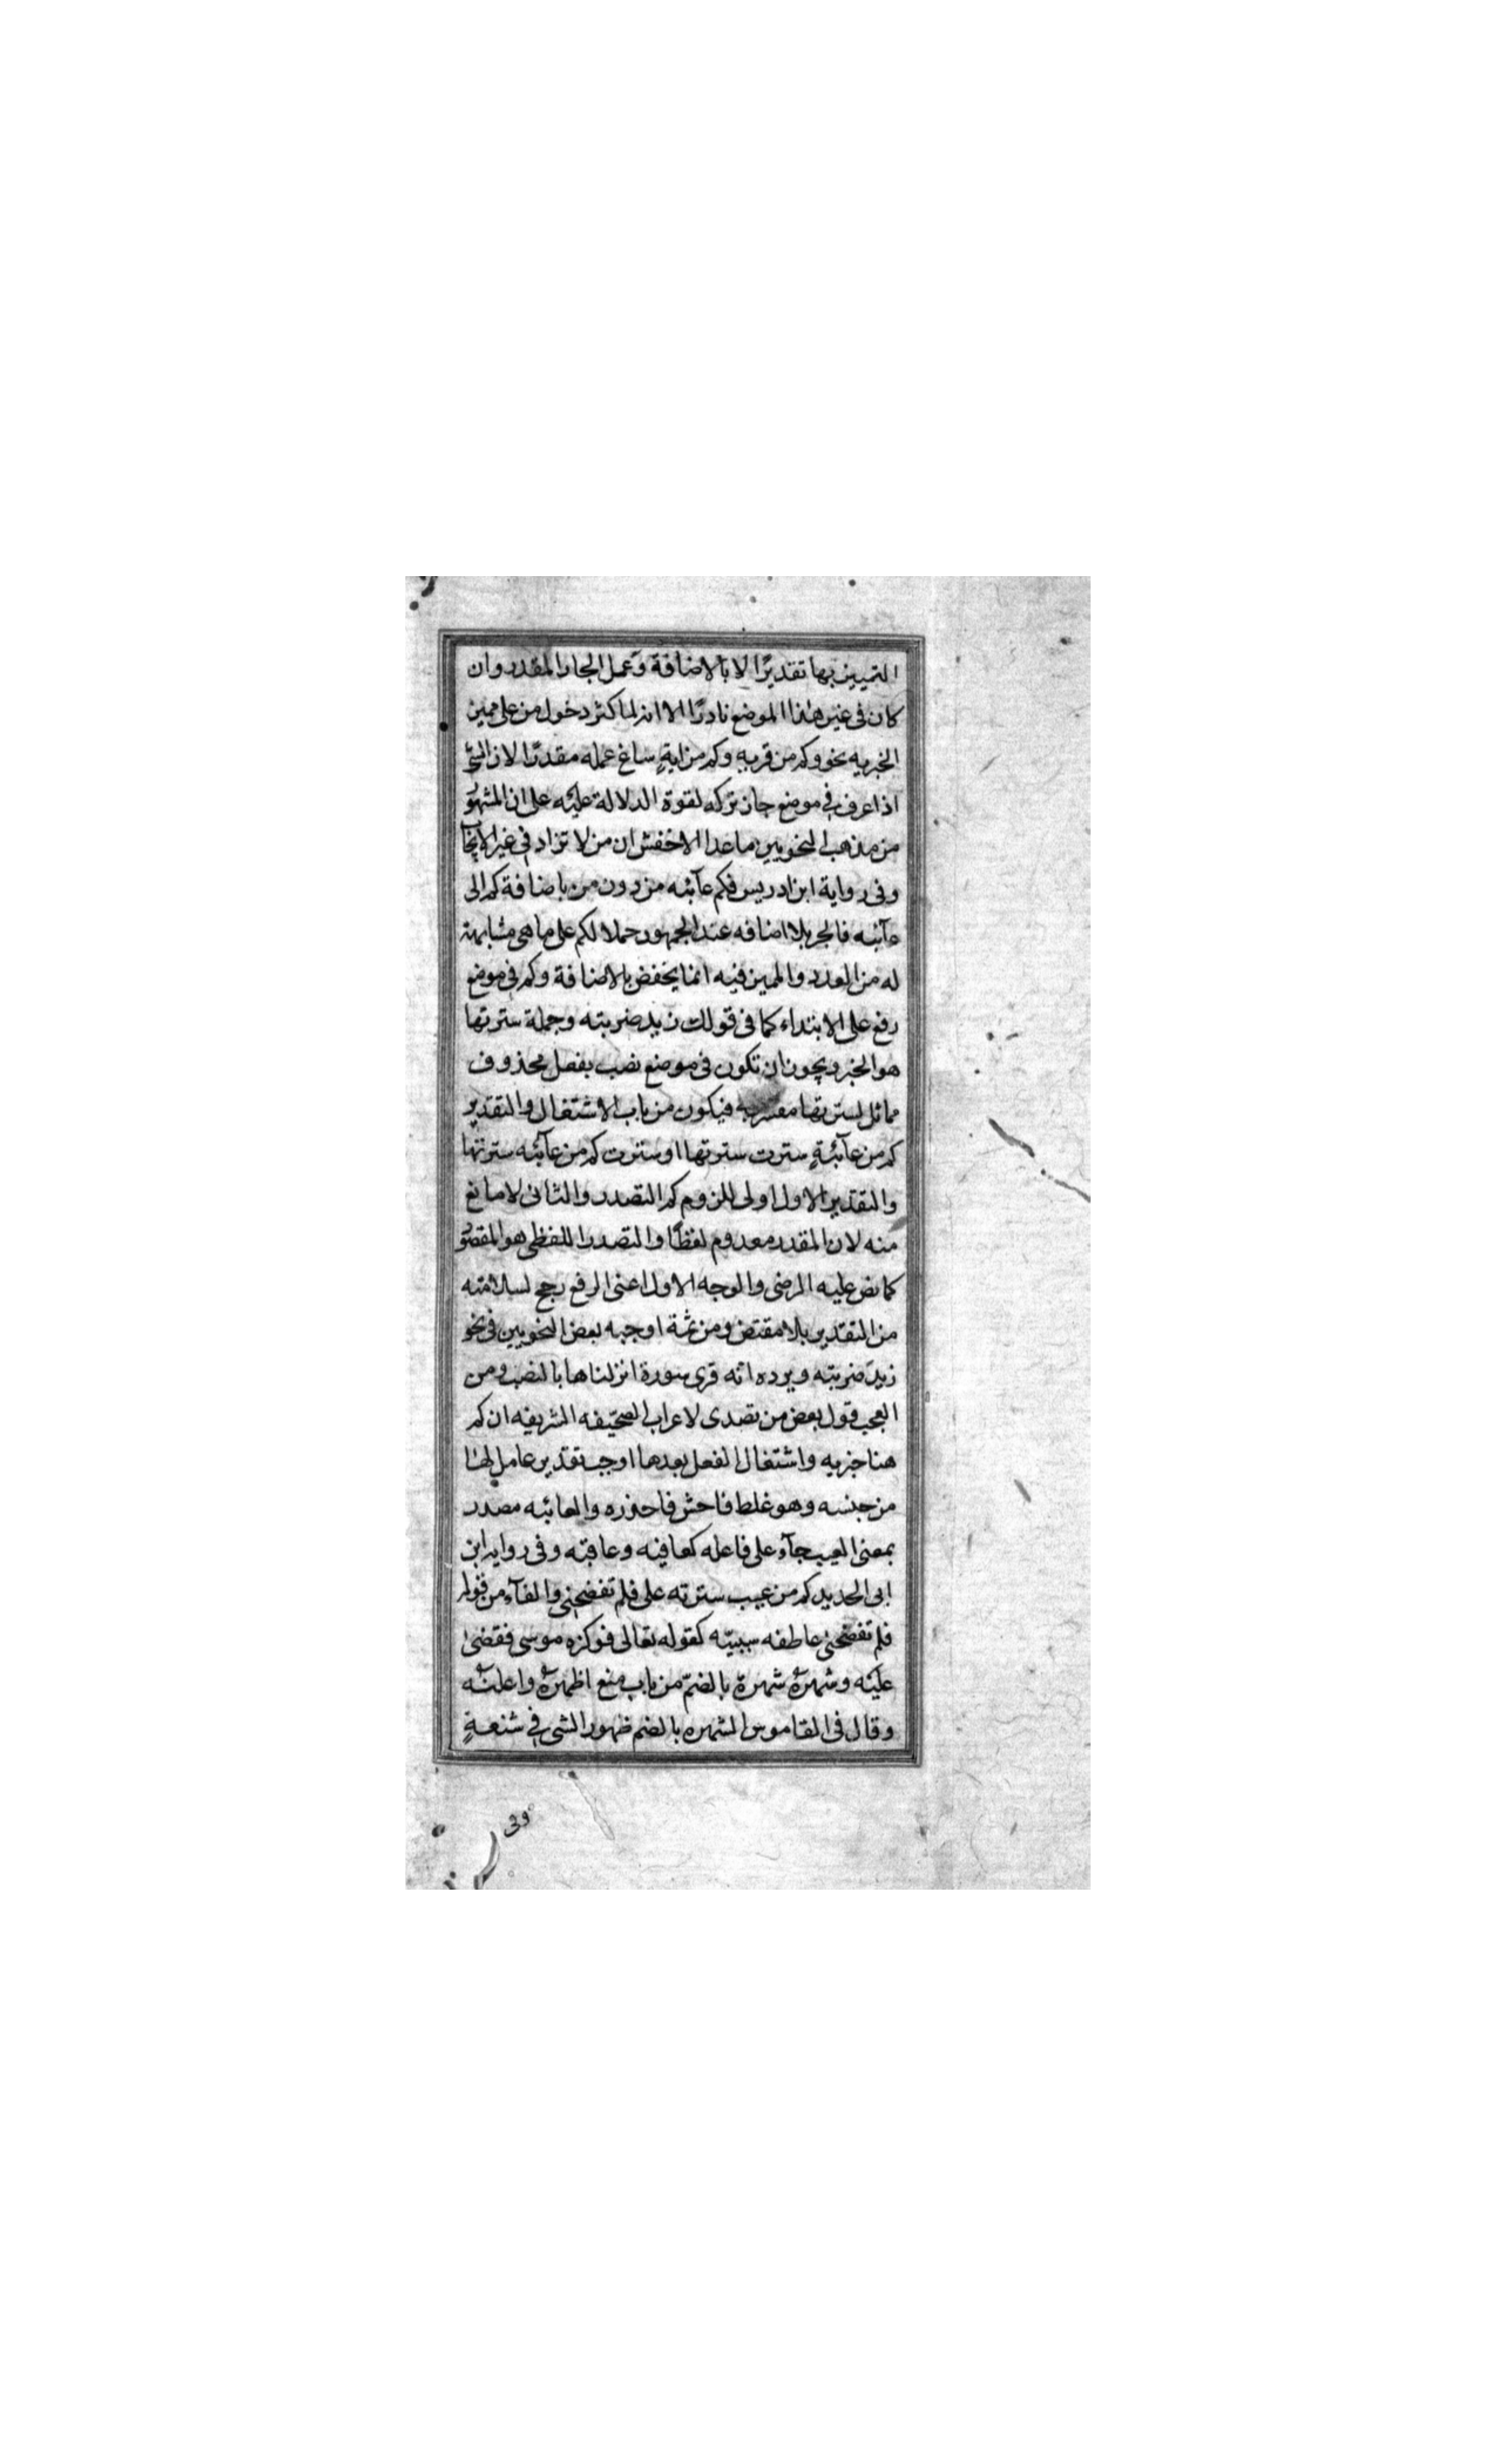 التمييز بها تقديرًا لا بالاضافة وعمل الجار المقدر وان
كان فى غير هذا الموضع نادرًا الا انه لما كثر دخول من على مميز
الخبريه نحو وكم من قريةٍ وكم من ايةٍ ساغ عمله مقدرًا لان الشئ
اذا عرف فى موضع جاز تركه لقوة الدلالة عليه على ان المشهور
من مذهب النحويين ما عدا الاخفش ان من لا تزاد فى غير الايجاب
وفى رواية ابن ادريس فكم عآئبه من دون من باضافة كم الى
عآئبه فالجر بلا اضافه عند الجمهور حملا لكم على ما هى مشابهة
له من العدد والمميز فيه انما يخفض بالاضافة وكم فى موضع
رفع على الابتداء كما فى قولك زيد ضربته وجملة سترتها
هو الخبر ويجوز ان تكون فى موضع نصب بفعل محذوف
مماثل لسترتها مفسر به فيكون من باب الاشتغال والتقدير
كم من عآئبةٍ سترت سترتها او سترت كم من عآئبه سترتها
والتقدير الاول اولى للزوم كم التصدر والثانى لا مانع
منه لان المقدر معدوم لفظًا والتصدر اللفظى هو المقصور
كما نص عليه الرضى والوجه الاول اعنى الرفع رجح لسلامته
من التقدير بلا مقتض ومن ثمة اوجبه بعض النحويين فى نحو
زيد ضربته ويرده انه قرى سورة انزلناها بالنصب ومن
العجب قول بعض من تصدى لاعراب الصحيفه الشريفه ان كم
هنا خبريه واشتغال الفعل بعدها اوجب تقدير عامل لها
من جنسه وهو غلط فاحش فاحذره والعائبه مصدر
بمعنى العيب جآء على فاعله كعافيه وعاقبه وفى روايه ابن
ابى الحديد كم من عيب سترته على فلم تفضحنى والفآء من قوله
فلم تفضحنى عاطفه سببيّه كقوله تعالى فوكزه موسى فقضى
عليه وشهرهُ شهرة بالضمّ من باب منع اظهرهُ واعلنهُ
وقال فى القاموس الشهره بالضم ظهور الشى فى شنعةٍ
وفى